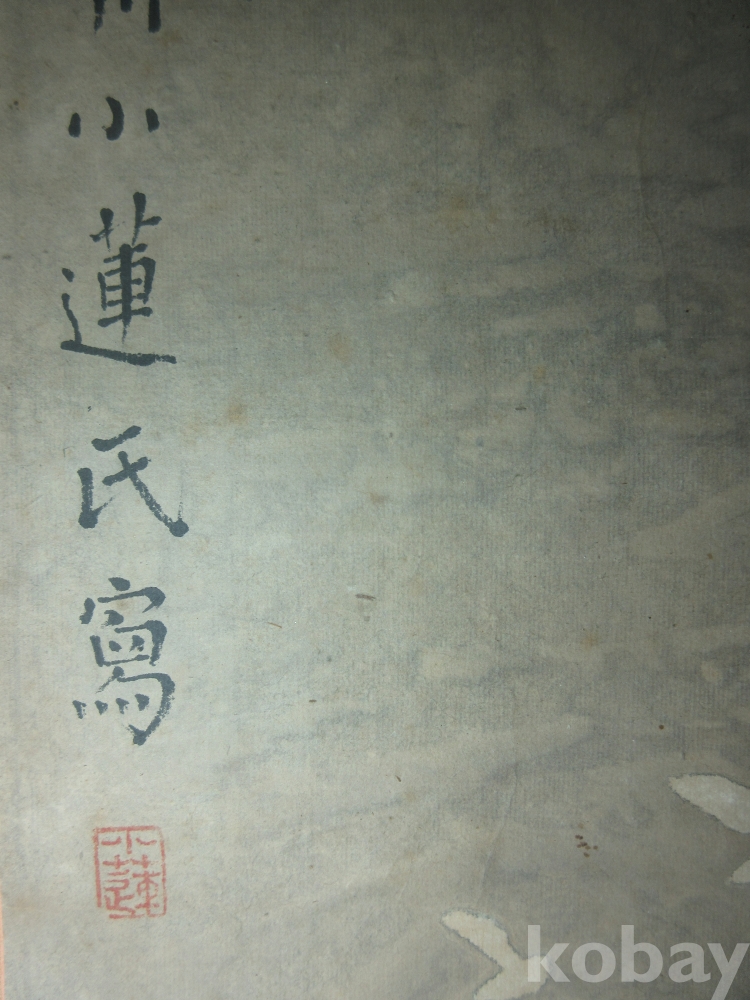 小蓮氏寫
小蓮
kobay